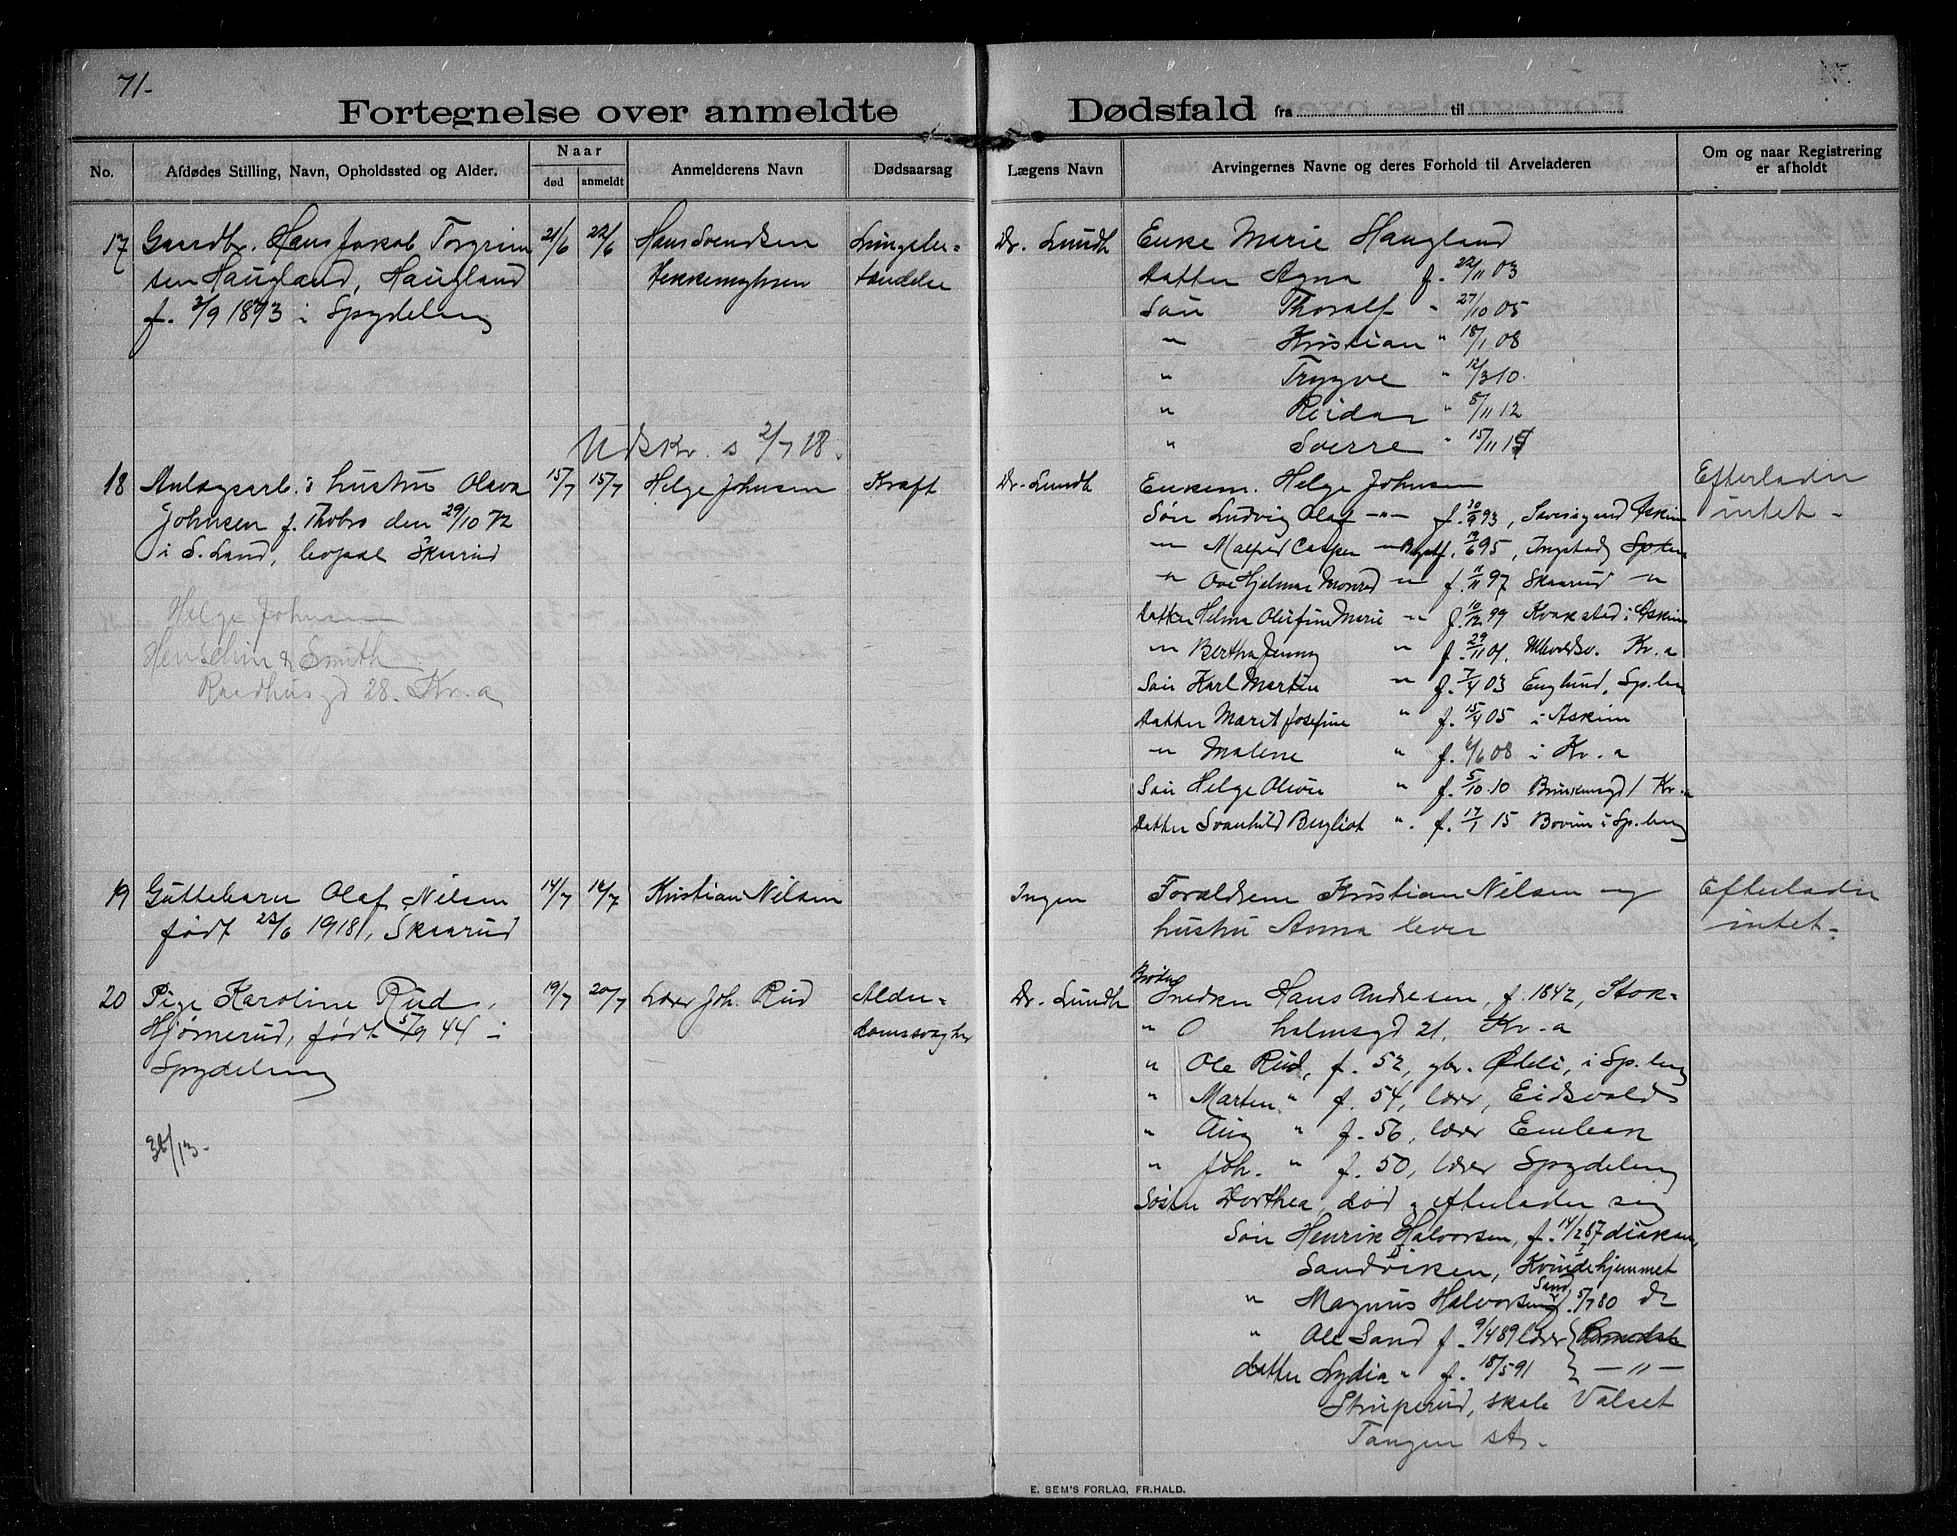 71-
Fortegnelse over anmeldte Dødsfald fra til
No.
Afdødes Stilling, Navn, Opholdssted og Alder.
Naar
død
anmeldt
Anmelderens Navn
Dødsaarsag
Lægens Navn
Arvingernes Navne og deres Forhold til Arveladeren
Om og naar Registrering
er afholdt
17 Gaardbr. Hans Jakob Torgrim
sen Haugland, Haugland
f. 3/9 1873 i Spydeberg
21/6
22/6
Hans Svendsen
Lungebe-
tændelse
Dr. Lundh
Enke Marie Haugland
Datter Agna f. 22/11 03
Søn Thoralf " 27/10 05
" Kristian " 18/1 08
" Trygve " 12/3 10.
" Reidar " 8/11 12
" Sverre " 15/11 15
Udskr. s 2/7 18.
18 Anlægsarb.s hustru Olava
Johnsen f. Thobro den 29/10 72
i S. Land, bopæl Skurud
15/7
15/7
Helge Johnsen
Kræft
Dr. Lundh
Enkem. Helge Johnsen
Søn Ludvig Olaf -"- f. 93, Askim
-"- Malfred Casper f. 6 95, Ingstad,
-"- Ove Hjelmar Monrad -"- f. 11/11 97 Skaarud -"-
Datter Helma Olufine Marie -"- f. 10/12 99 Kvakstad i Askim
-"- Bertha Jenny " f. 29/11 01, Kr.a
Søn Karl Martin -"- f. 7/4 03 Englund, Sp.berg
Datter Marit Josefine " f. 15/4 05 i Askim
-"- Malene " f. 6/6 08 i Kr.a
Søn Helge Oliver " f. 5/10 10 Kr.a
Datter Svanhild Bergliot ". f. 17/1 15 Bovim i Sp.berg
Efterlader
intet -
Helge Johnsen
Henschin & Smith
Raadhusgd 28. Kr.a
19 Guttebarn Olaf Nilsen
født 23/6 1918, Skaarud
14/7
14/7
Kristian Nilsen
Ingen
Forældrene Kristian Nilsen og
hustru Anna lever
Efterlader
intet -
20 Pige Karoline Rud,
Hjørnerud, født 5/9 44 i
Spydeberg
19/7
20/7
Lærer Joh. Rud
Alder-
domssvaghed
Dr. Lundh
Broder
Snedker Hans Andresen, f. 1842, Stok-
" holmsgd 21, Kr.a
" Ole Rud, f. 52, gbr. i Sp.berg
" Marten " f. 54, lærer, Eidsvold
" Aug " f. 56, lærer Enebak
" Joh. " f. 50, lærer Spydeberg
Søster Dorthea, død & efterlader sig
Søn Henrik Halvorsen, f. 14/2 87 diakon,
Sandviken, Kvindehjemmet
" Magnus Halvorsen Sand f. 5/7 80 do
" Ole Sand f. 9/4 89 lærer
datter Lydia " f. 18/5 91 -"-
Struperud, skole Valset
Tangen st.
38/13-
E. SEM'S FORLAG, FR.HALD.